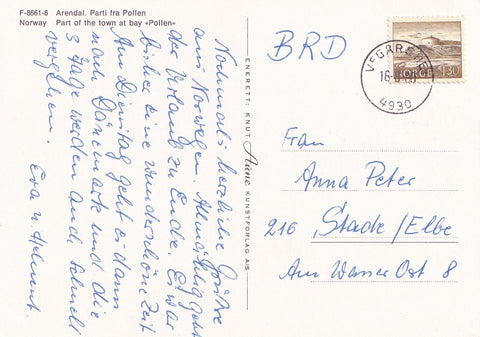 F-8661-8 Arendal. Parti fra Pollen
Norway Part of the town at bay «Pollen»
Nochmals herzliche Grüße
aus Norwegen. Allmählich geht
der Urlaub zu Ende. Es war
bisher eine wunderschöne Zeit
Am Dienstag geht es dann
nach Dänemark und die
3 Tage werden auch schnell
vergehen.
Eva u Helmut.
ENERETT: KNUT Aune KUNSTFORLAG A/S
BRD
VEGÅRSHEI
4930
NORGE 130
Frau
Anna Peter
216 Stade/Elbe
Am Wasser Ost 8